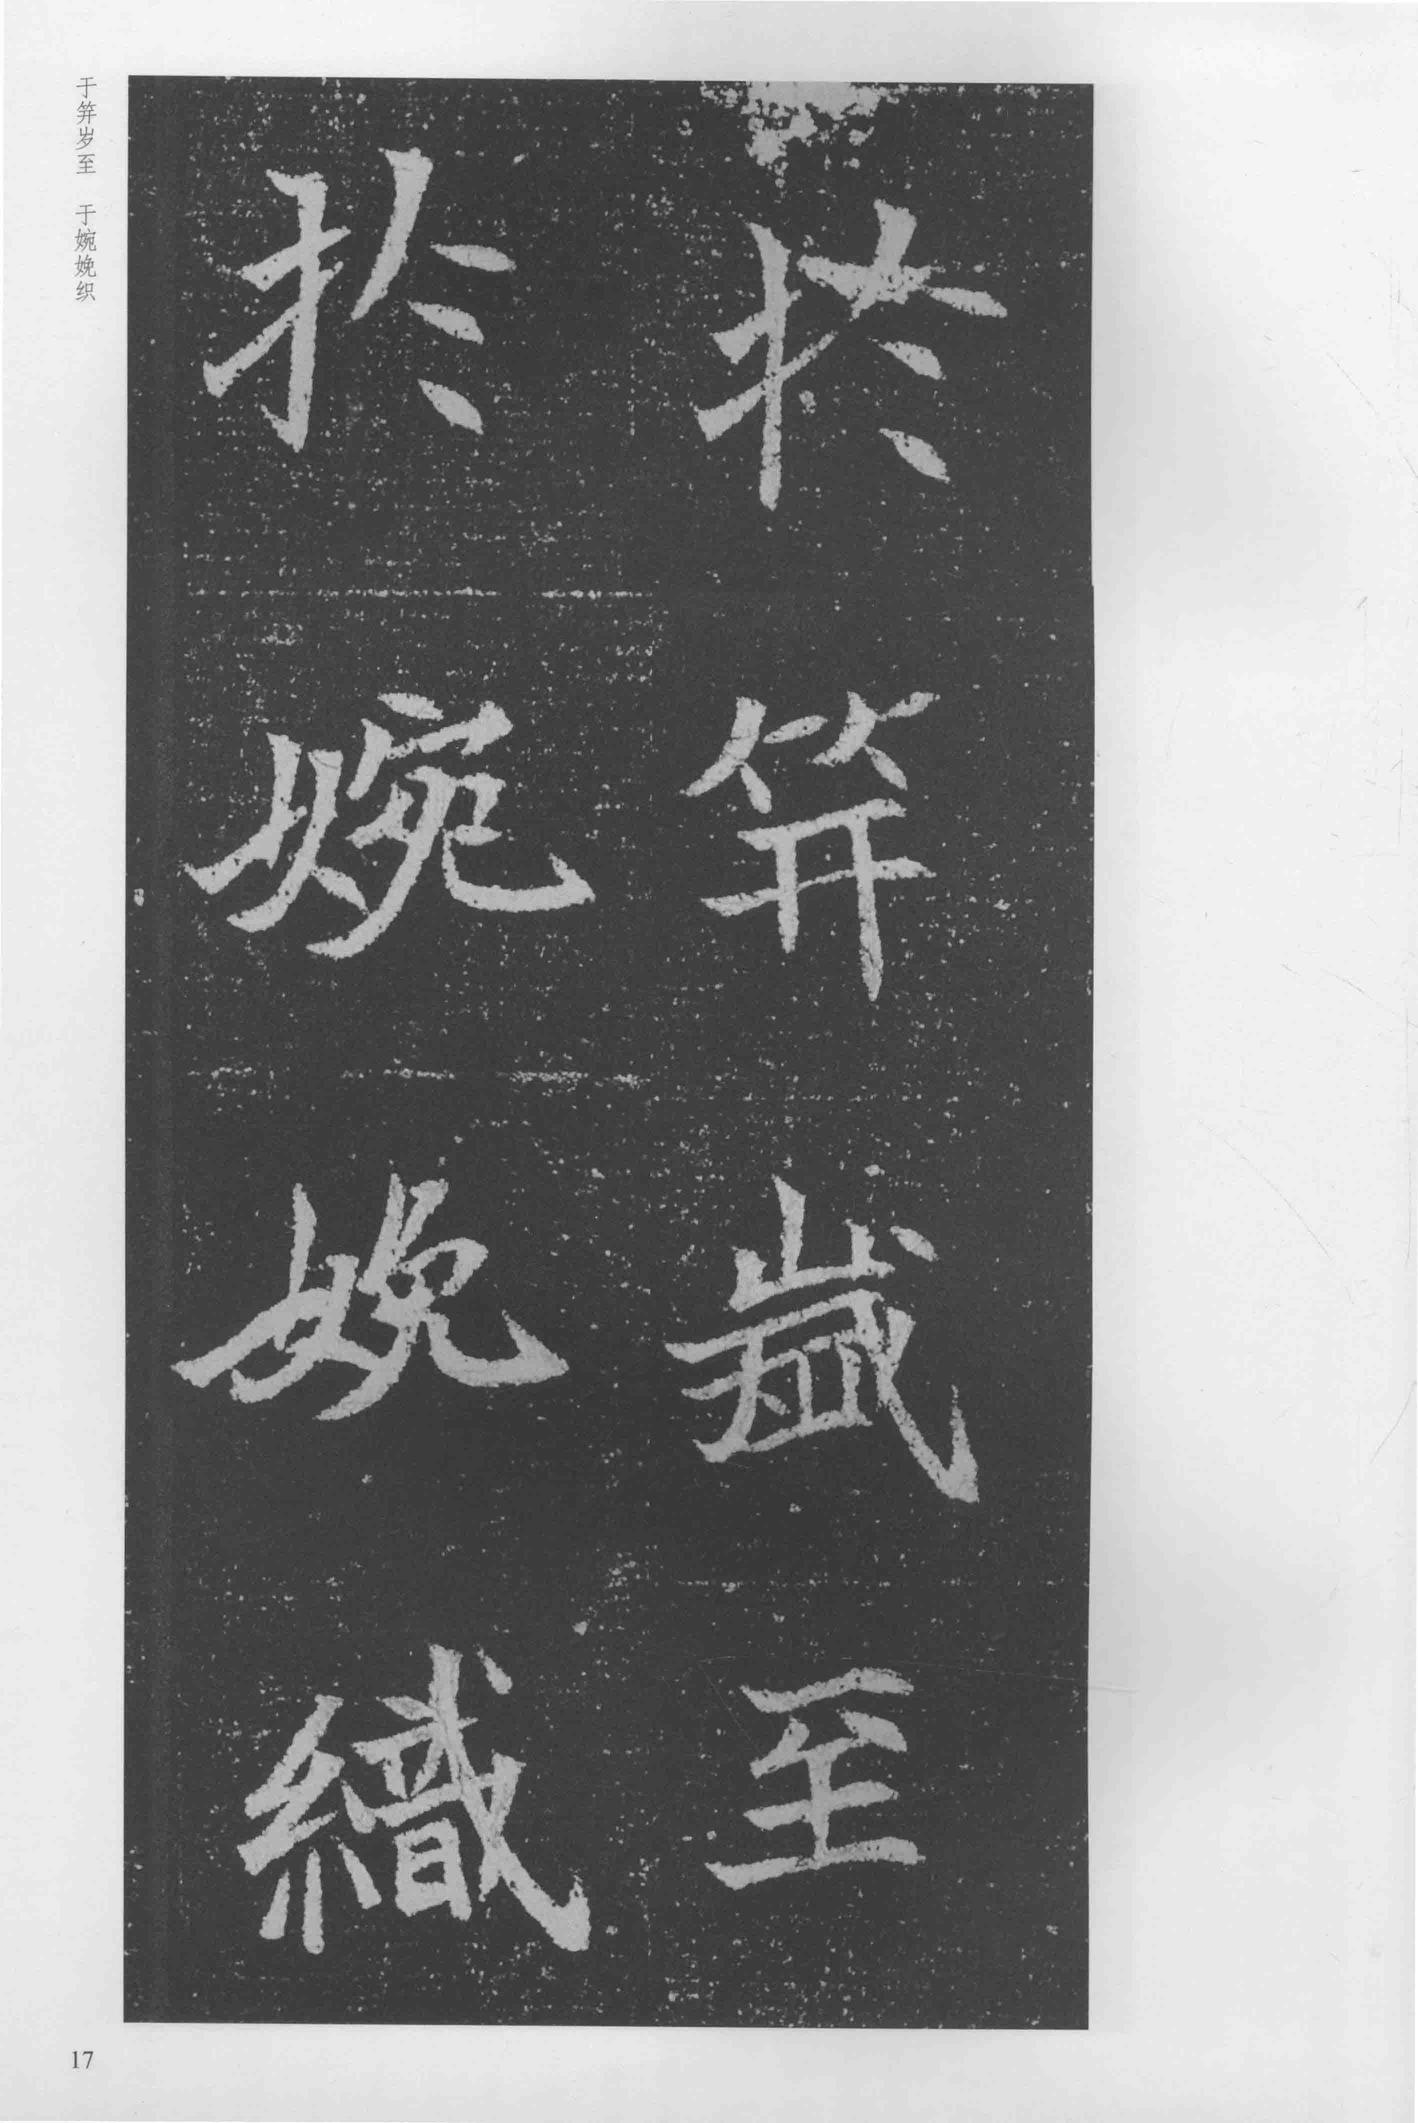 於笄歲至
於婉娩織
于笄岁至 于婉娩织
17